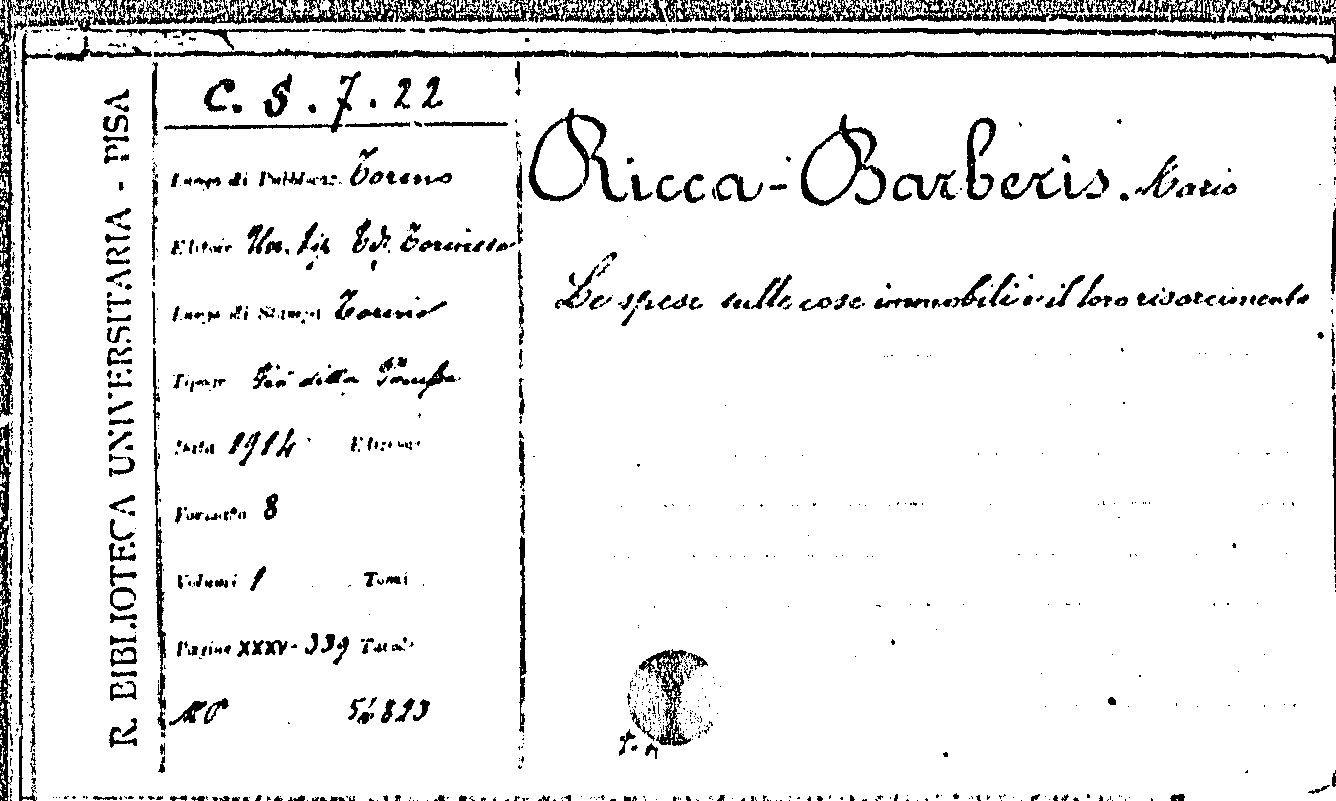 R. BIBLIOTECA UNIVERSITARIA - PISA
C. S. 7. 22
Luogo di Pubblicaz. Torino
Editore Un. Tip. Ed. Torinese
Luogo di Stampa Torino
Tipogr.
Data 1914 Edizione
Formato 8
Volumi 1 Tomi
Pagine XXXV-339 Tavole
54823
Ricca-Barberis. Mario
Le spese sulle cose immobili e il loro risarcimento